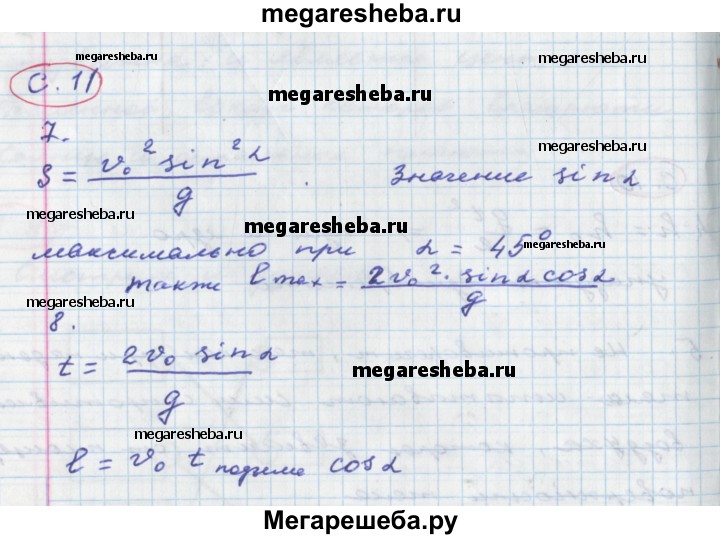 megaresheba.ru
megaresheba.ru
megaresheba.ru
с. 11
megaresheba.ru
7.
megaresheba.ru
S = v₀² sin² α / g . Значение sin α
megaresheba.ru
megaresheba.ru
максимально при α = 45°
megaresheba.ru
также l max = 2v₀² · sin α cos α / g
megaresheba.ru
8.
t = 2v₀ sin α / g
megaresheba.ru
megaresheba.ru
l = v₀ t подъема cos α
Мегарешеба.ру